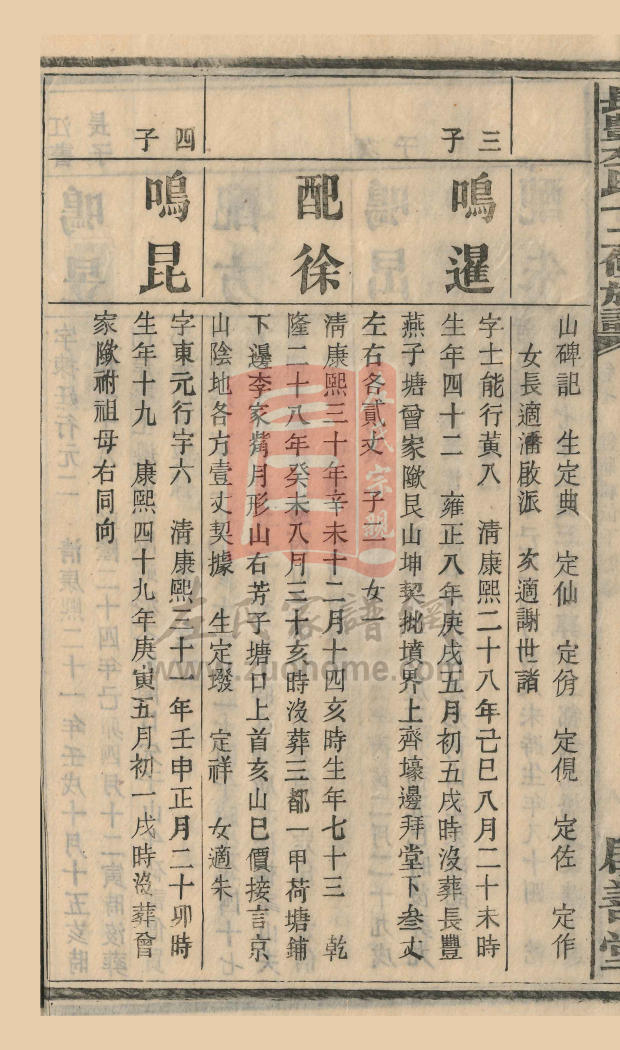 山碑記　生定典　定仙　定份　定俔　定佐　定作
女長適潘啟派　次適謝世諸
三子
鳴暹
字士能行黃八　清康熙二十八年己巳八月二十未時
生年四十二　雍正八年庚戌五月初五戌時沒葬長豐
燕子塘曾家隞艮山坤契批墳界上齊壕邊拜堂下叁丈
左右各貳丈　子二　女一
配徐
清康熙三十年辛未十二月十四亥時生年七十三　乾
隆二十八年癸未八月三十亥時沒葬三都一甲荷塘鋪
下邊李家嘴月形山右芳子塘口上首亥山巳價接言京
山陰地各方壹丈契據　生定墢　定祥　女適朱
四子
鳴昆
字東元行字六　清康熙三十一年壬申正月二十卯時
生年十九　康熙四十九年庚寅五月初一戌時沒葬曾
家隞祔祖母右同向
啟善堂
左氏家譜網
www.zuohome.com